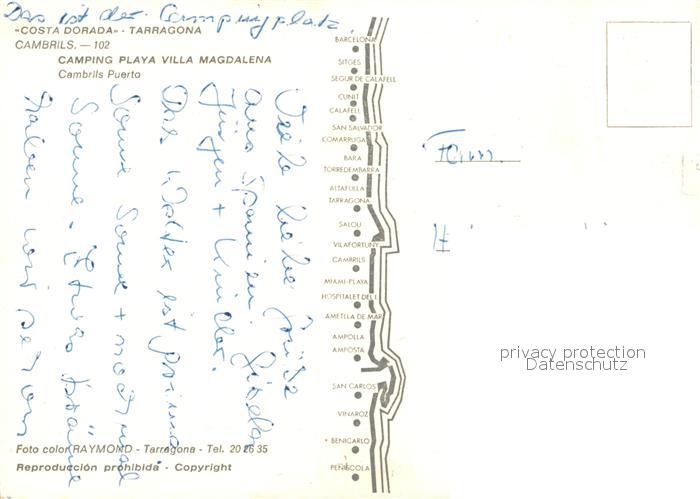 Das ist der Campingplatz.
«COSTA DORADA» - TARRAGONA
CAMBRILS. — 102
CAMPING PLAYA VILLA MAGDALENA
Cambrils Puerto
Viele liebe Grüße
aus Spanien. Gisela
Jürgen + Kinder.
Das Wetter ist prima
Sonne Sonne + nochmal
Sonne. Etwas Bräune
haben wir schon
Foto color RAYMOND - Tarragona - Tel. 20 26 35
Reproducción prohibida - Copyright
BARCELONA
SITGES
SEGUR DE CALAFELL
CUNIT
CALAFELL
SAN SALVADOR
COMARRUGA
BARA
TORREDEMBARRA
ALTAFULLA
TARRAGONA
SALOU
VILAFORTUNY
CAMBRILS
MIAMI-PLAYA
HOSPITALET DEL I.
AMETLLA DE MAR
AMPOLLA
AMPOSTA
SAN CARLOS
VINAROZ
BENICARLO
PEÑISCOLA
Fam.
H
privacy protection
Datenschutz